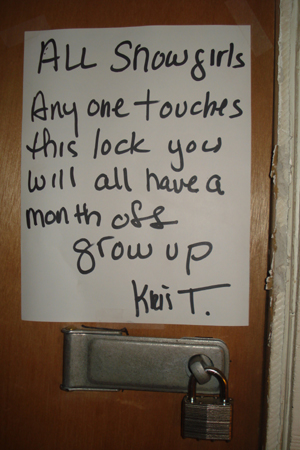 ALL Showgirls
Any one touches
this lock you
will all have a
month off
grow up
Kris T.